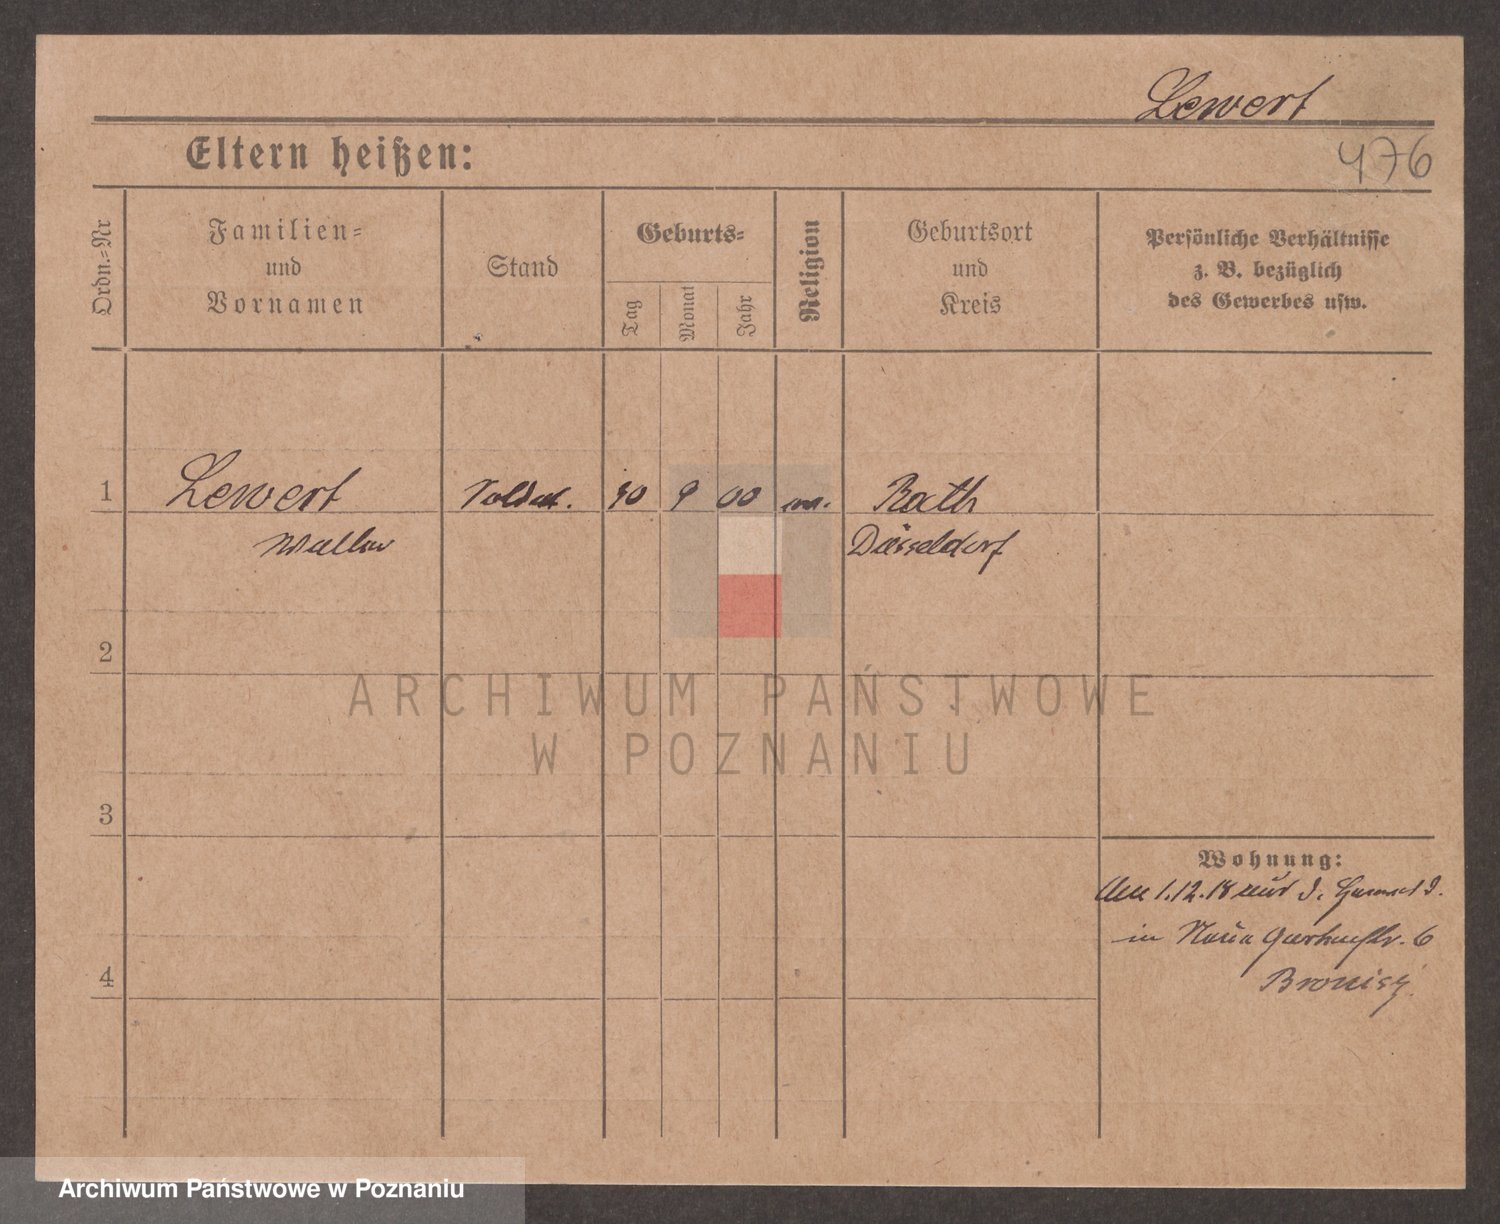 Lewert
Eltern heißen:
476
Ordn.=Nr
Familien=
und
Vornamen
Stand
Geburts=
Tag
Monat
Jahr
Religion
Geburtsort
und
Kreis
Persönliche Verhältnisse
z. B. bezüglich
des Gewerbes usw.
1
Lewert
Soldat.
9 00
Rath
Düsseldorf
2
ARCHIWUM PAŃSTWOWE
W POZNANIU
3
Wohnung:
1.12.18
in 6
4
Archiwum Państwowe w Poznaniu